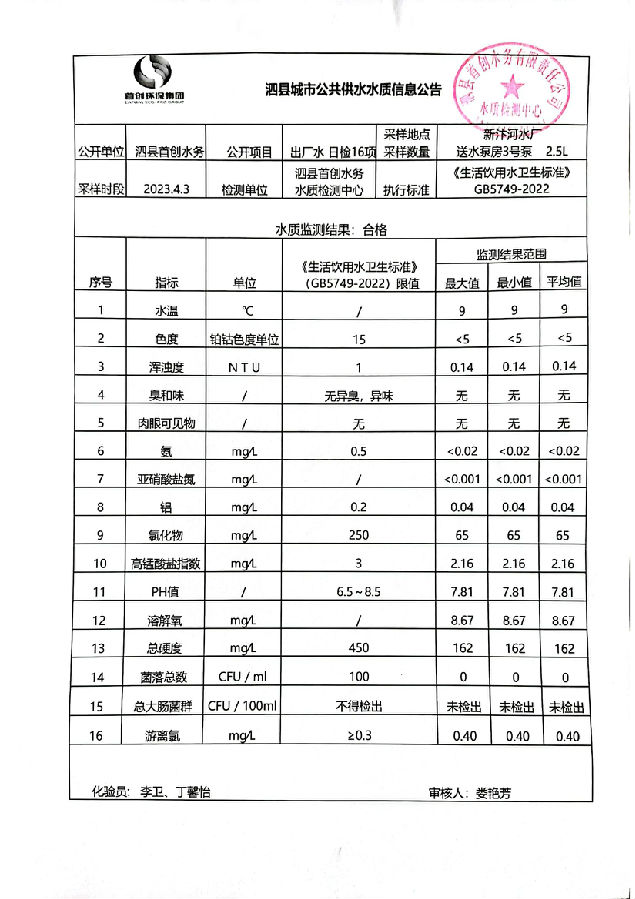 首创环保集团
CAPITAL ECO-PRO GROUP
泗县城市公共供水水质信息公告
泗县首创水务有限责任公司
水质检测中心
公开单位 泗县首创水务 公开项目 出厂水 日检16项 采样地点 采样数量 新汴河水厂 送水泵房3号泵 2.5L
采样时段 2023.4.3 检测单位 泗县首创水务 水质检测中心 执行标准 《生活饮用水卫生标准》 GB5749-2022
水质监测结果：合格
序号 指标 单位 《生活饮用水卫生标准》（GB5749-2022）限值 监测结果范围
最大值 最小值 平均值
1 水温 ℃ / 9 9 9
2 色度 铂钴色度单位 15 <5 <5 <5
3 浑浊度 NTU 1 0.14 0.14 0.14
4 臭和味 / 无异臭，异味 无 无 无
5 肉眼可见物 / 无 无 无 无
6 氨 mg/L 0.5 <0.02 <0.02 <0.02
7 亚硝酸盐氮 mg/L / <0.001 <0.001 <0.001
8 铝 mg/L 0.2 0.04 0.04 0.04
9 氯化物 mg/L 250 65 65 65
10 高锰酸盐指数 mg/L 3 2.16 2.16 2.16
11 PH值 / 6.5~8.5 7.81 7.81 7.81
12 溶解氧 mg/L / 8.67 8.67 8.67
13 总硬度 mg/L 450 162 162 162
14 菌落总数 CFU / ml 100 0 0 0
15 总大肠菌群 CFU / 100ml 不得检出 未检出 未检出 未检出
16 游离氯 mg/L ≥0.3 0.40 0.40 0.40
化验员：李卫、丁馨怡 审核人：娄艳芳